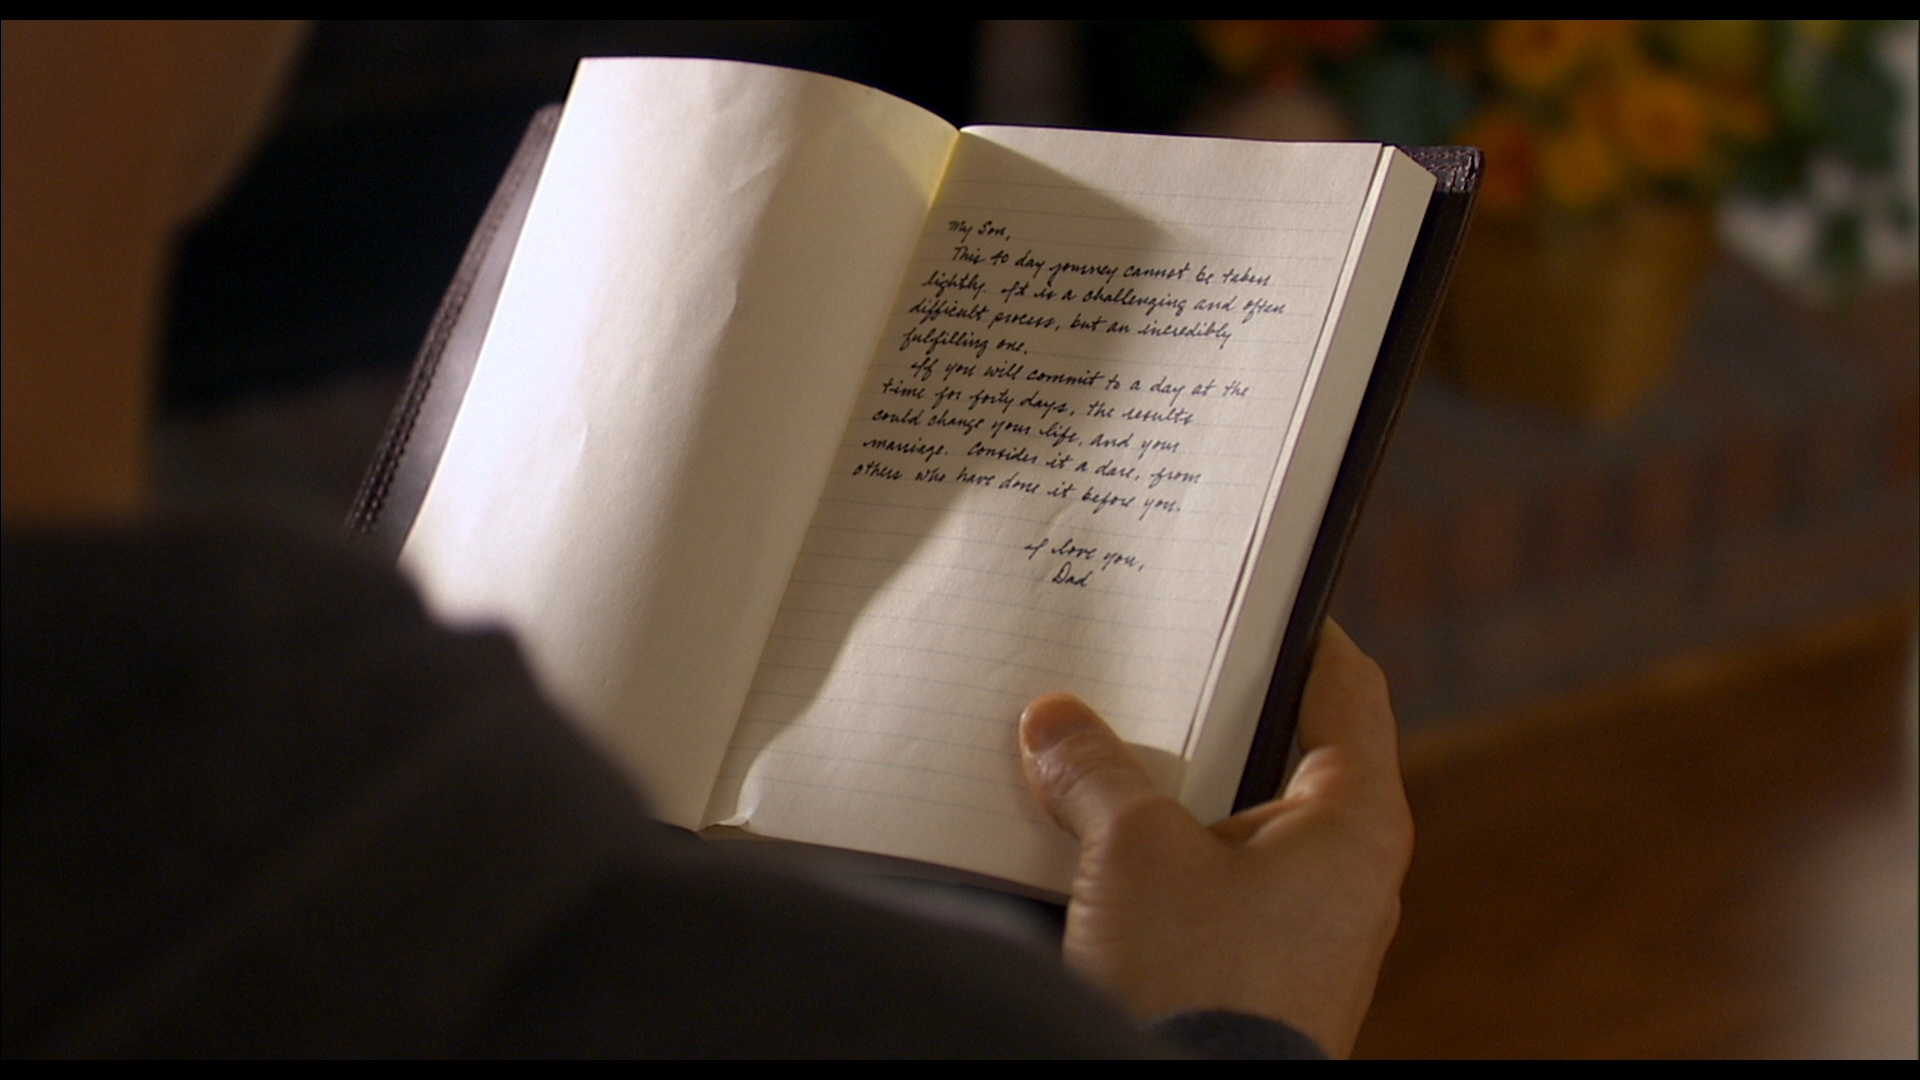 My Son,
This 40 day journey cannot be taken
lightly. It is a challenging and often
difficult process, but an incredibly
fulfilling one.
If you will commit to a day at the
time for forty days, the results
could change your life, and your
marriage. Consider it a dare, from
others who have done it before you.
I love you,
Dad